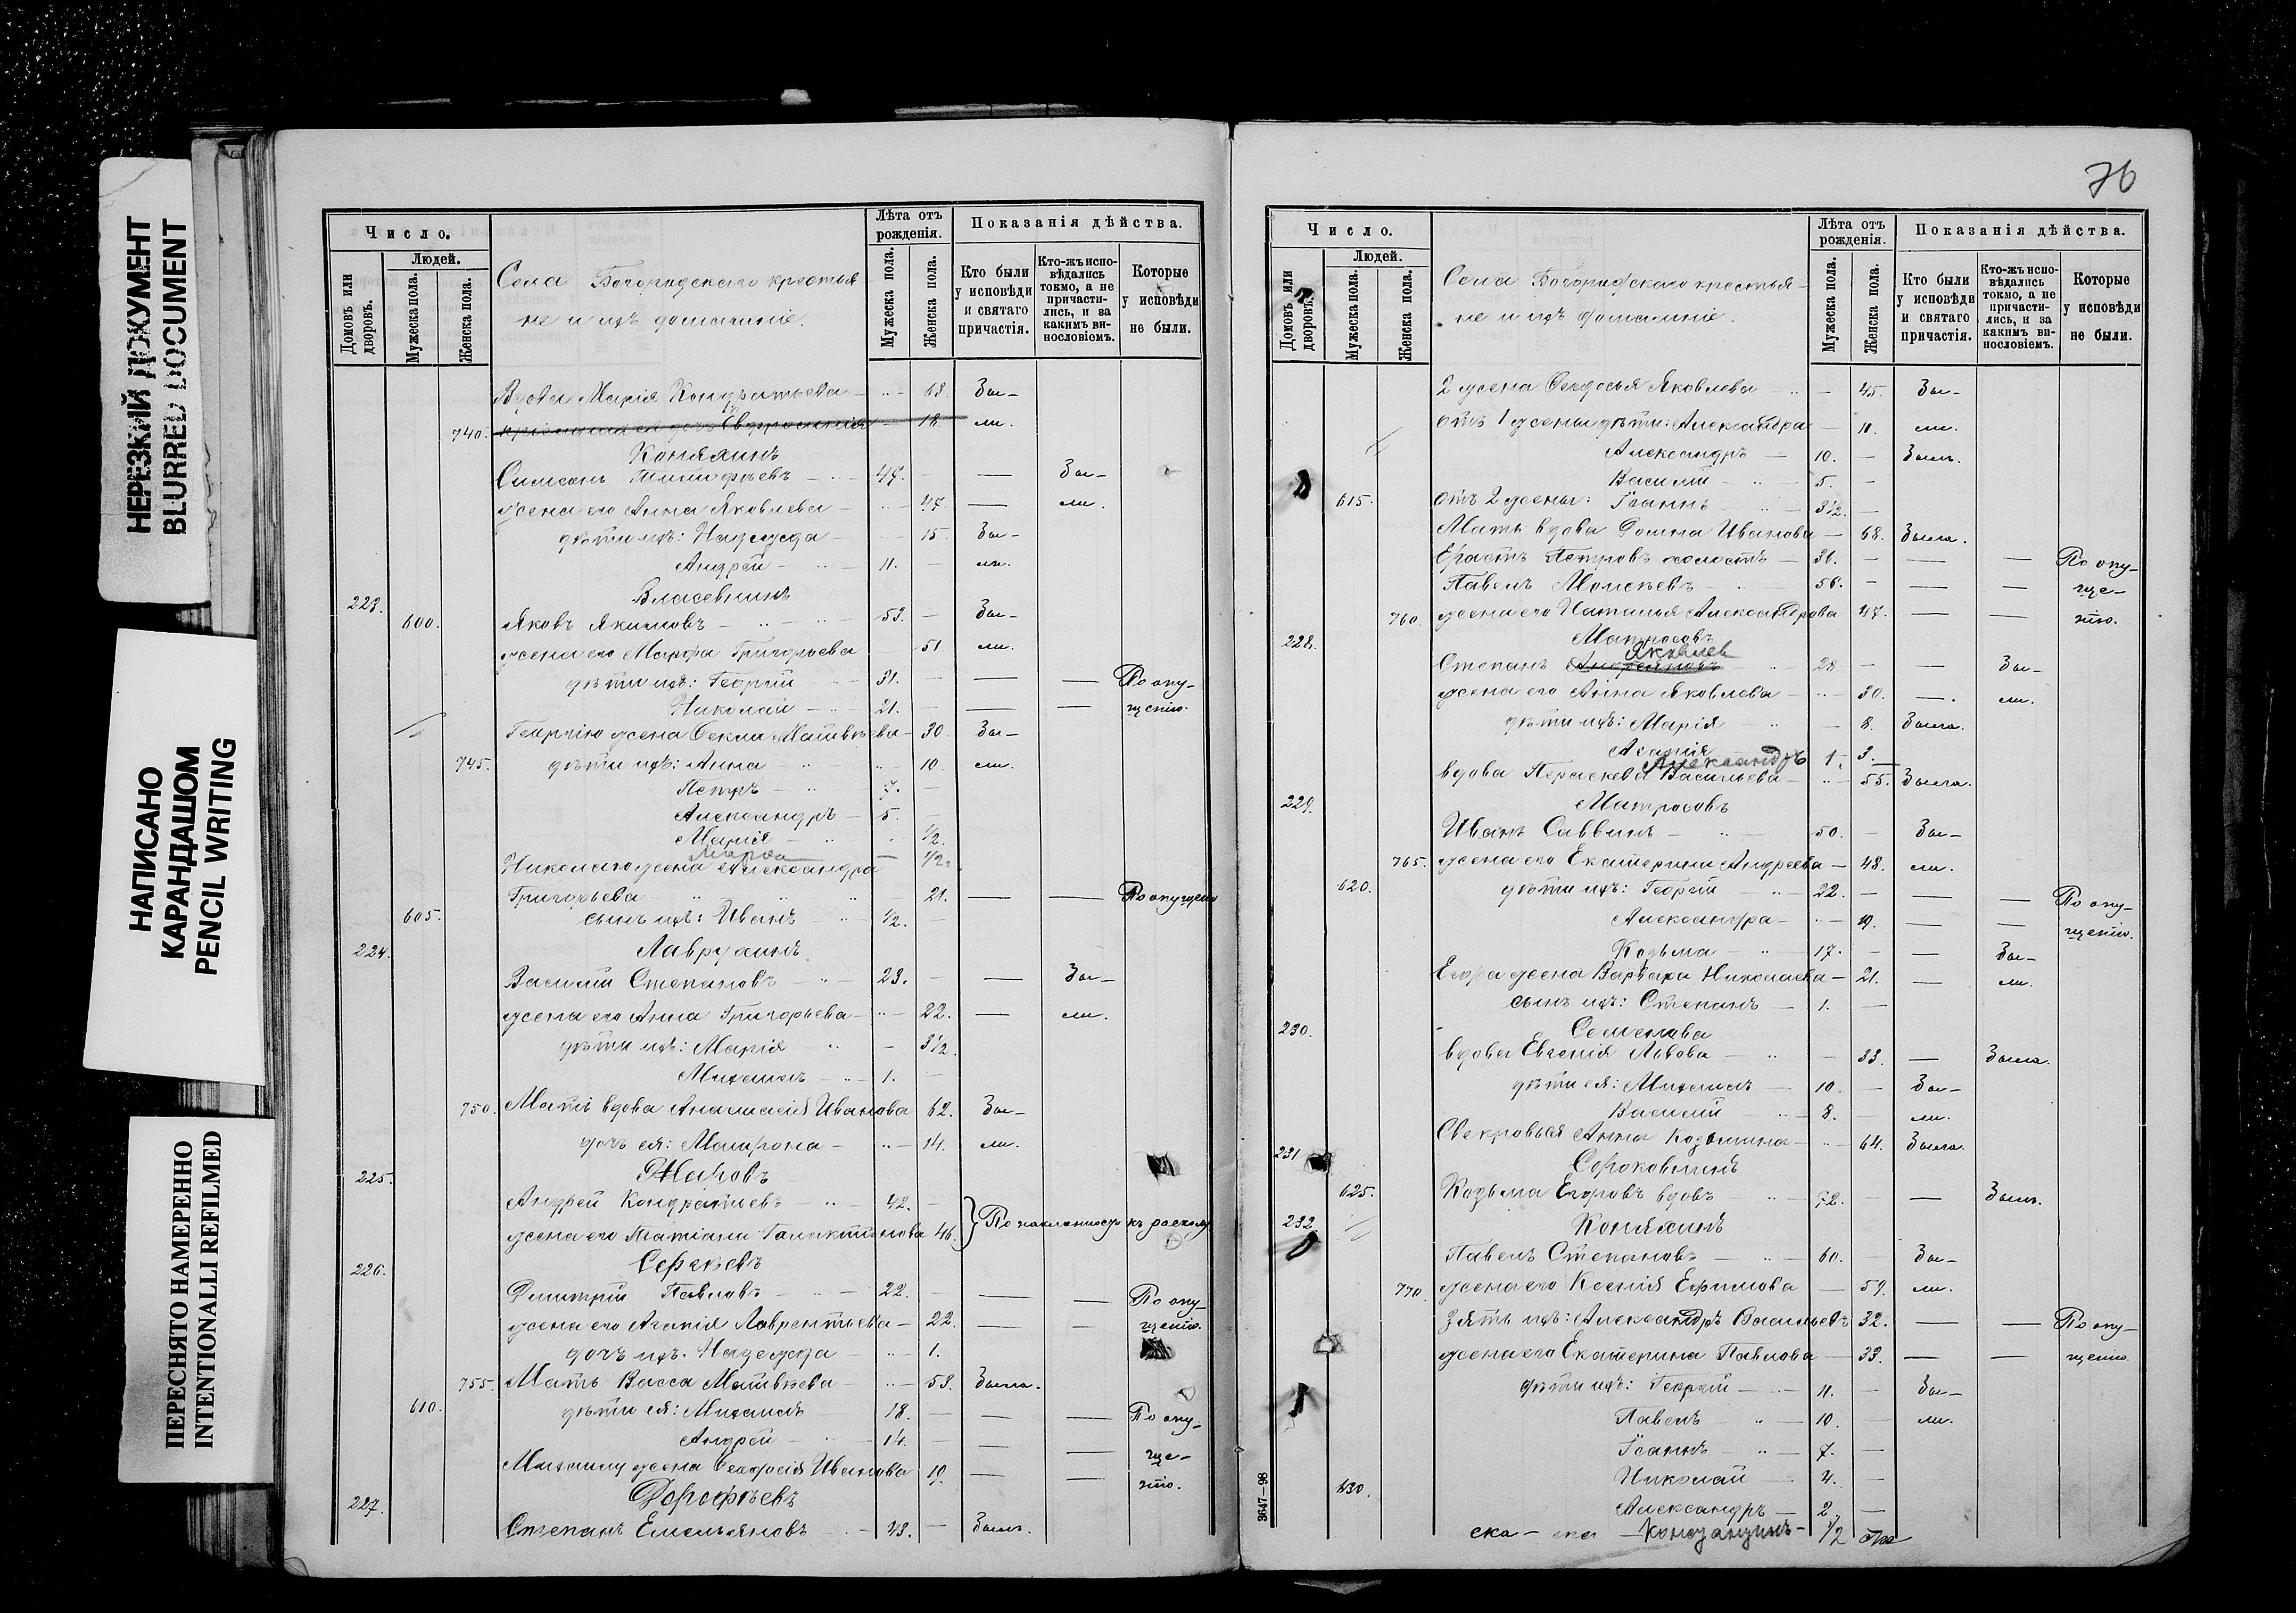 НЕРЕЗКИЙ ДОКУМЕНТ
BLURRED DOCUMENT
НАПИСАНО
КАРАНДАШОМ
PENCIL WRITING
ПЕРЕСНЯТО НАМЕРЕННО
INTENTIONALLI REFILMED
Число. Лѣта отъ рожденія. Показанія дѣйства.
Домовъ или дворовъ. Людей. Мужеска пола. Женска пола. Мужеска пола. Женска пола. Кто были у исповѣди и святаго причастія. Кто-жъ исповѣдались токмо, а не причастились, и за какимъ винословіемъ. Которые у исповѣди не были.
Села Богородскаго крестья
не и ихъ домашніе.
Вдова Марія Кондратьева 63. Бы-
740. дочь Евфросинія 18. ли.
Коняхинъ
Симеонъ Тимофѣевъ 47. Бы-
жена его Анна Яковлева 47 ли.
дѣти ихъ: Надежда 15 Бы-
Андрей 11. ли.
223. Власевнинъ
600. Яковъ Якимовъ 53. Бы-
жена его Марфа Григорьева 51 ли.
дѣти ихъ: Георгій 31. По опу-
Николай 21. щенію.
Георгію жена Фекла Матвѣева 30 Бы-
745. дѣти ихъ: Анна 10. ли.
Петръ 7.
Александръ 5.
Марія 1/2.
Марфа 1/2.
Николаю жена Александра
Григорьева 21. По опущенію
605. сынъ ихъ: Иванъ 1/2.
224. Лаврухинъ
Василій Степановъ 23. Бы-
жена его Анна Григорьева 22. ли.
дѣти ихъ: Марія 3 1/2.
Михаилъ 1.
750. Мать вдова Анастасія Иванова 62. Бы-
дочь ея: Матрона 14. ли.
225. Жаровъ
Андрей Кондратьевъ 42.
жена его Татіана Галактіонова 46. По наклонности къ расколу
226. Сергѣевъ
Димитрій Павловъ 22. По опу-
жена его Агапія Лаврентьева 22. щенію.
дочь ихъ: Надежда 1.
755. Мать Васса Матвѣева 53. Была.
610. дѣти ея: Михаилъ 18. По опу-
Андрей 14. ще-
Михаилу жена Феодосія Иванова 19. нію.
227. Дорофѣевъ
Степанъ Емельяновъ 43. Былъ.
76
Число. Лѣта отъ рожденія. Показанія дѣйства.
Домовъ или дворовъ. Людей. Мужеска пола. Женска пола. Мужеска пола. Женска пола. Кто были у исповѣди и святаго причастія. Кто-жъ исповѣдались токмо, а не причастились, и за какимъ винословіемъ. Которые у исповѣди не были.
Села Богородскаго крестья-
не и ихъ домашніе.
2 жена Феодосья Яковлева 45. Бы-
отъ 1 жены дѣти: Александра 11. ли.
Александръ 10. Былъ.
Василій 5.
615. отъ 2 жены: Іоаннъ 3 1/2.
Мать вдова Домна Иванова 68. Была.
Ерастъ Петровъ холостъ 31. По опу-
Павелъ Моисеевъ 56. ще-
760. жена его Наталья Александрова 47. нію.
228. Матросовъ
Яковлев
Степанъ 28. Бы-
жена его Анна Яковлева 30. ли.
дѣти ихъ: Марія 8. Была.
Агапія 3.
Александръ 1.
вдова Параскева Васильева 55. Была.
229. Матросовъ
Иванъ Саввинъ 50. Бы-
765. жена его Екатерина Андреева 48. ли.
620. дѣти ихъ: Георгій 22. По опу-
Александра 19. щенію.
Козьма 17. Бы-
Егора жена Варвара Николаева 21. ли.
сынъ ихъ: Степанъ 1.
230. Семенова
вдова Евгенія Львова 33. Была.
дѣти ея: Михаилъ 10. Бы-
Василій 8. ли.
Свекровья Анна Козьмина 64. Была.
231 Сороковнинъ
625. Козьма Егоровъ вдовъ 72. Былъ.
232 Коняхинъ
Павелъ Степановъ 60. Бы-
770. жена его Ксенія Ефимова 59. ли.
Зять ихъ: Александръ Васильевъ 32. По опу-
жена его Екатерина Павлова 33. щенію
дѣти ихъ: Георгій 11. Бы-
Павелъ 10. ли.
Іоаннъ 7.
Николай 4.
630. Александръ 2.
1/2
3647—98